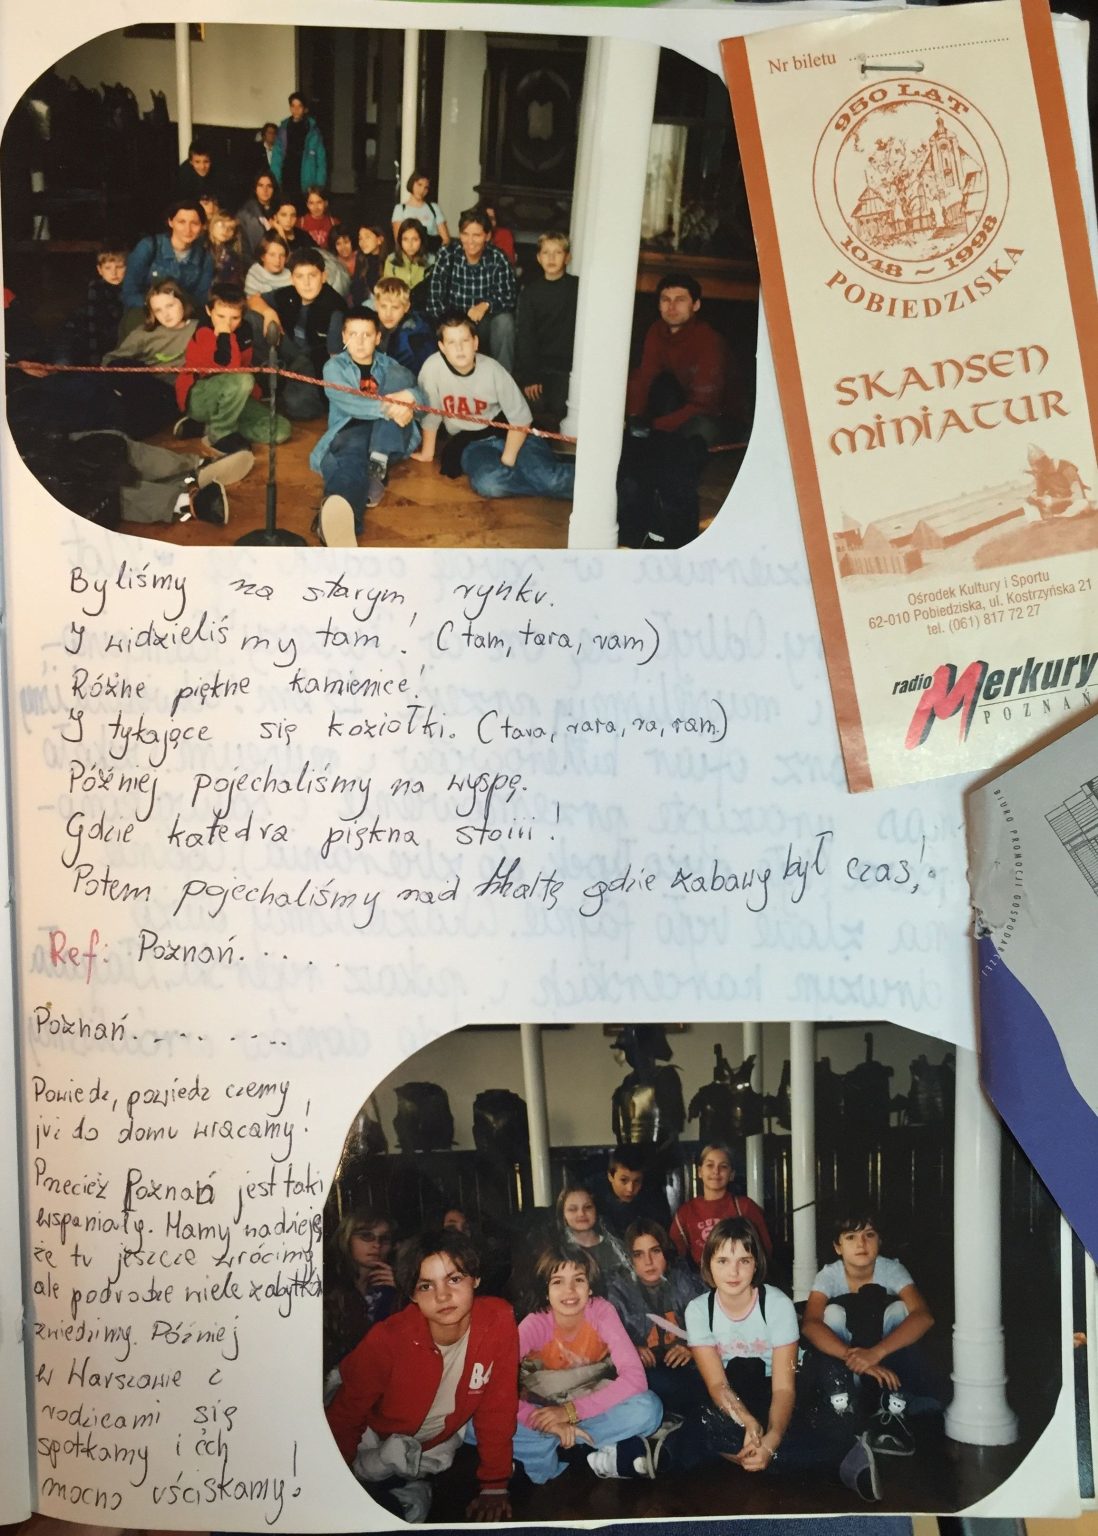 Nr biletu
950 LAT
1048 ~ 1998
POBIEDZISKA
SKANSEN
MINIATUR
Ośrodek Kultury i Sportu
62-010 Pobiedziska, ul. Kostrzyńska 21
tel. (061) 817 72 27
radio Merkury
POZNAŃ
BIURO PROMOCJI GOSPODARCZEJ
GAP
Byliśmy na starym rynku.
I widzieliśmy tam! (tam, tara, ram)
Różne piękne kamienice!
I tykające się koziołki. (tara, rara, ra, ram)
Później pojechaliśmy na wyspę.
Gdzie katedra piękna stoiii!
Potem pojechaliśmy nad Maltę gdzie zabawy był czas,!
Ref: Poznań.....
Poznań.......
Powiedz, powiedz czemy
już do domu wracamy!
Przecież Poznań jest taki
wspaniały. Mamy nadzieję
że tu jeszcze wrócimy
ale podrodze wiele zabytków
zwiedzimy. Później
w Warszawie z
rodzicami się
spotkamy i ich
mocno uściskamy!